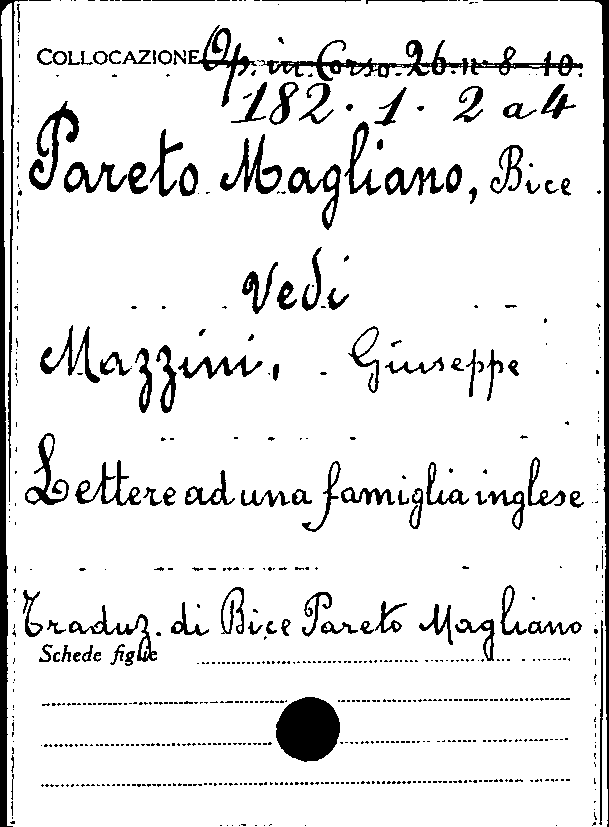 COLLOCAZIONE Op. in Corso. 26. n° 8-10.
182. 1. 2 a 4
Pareto Magliano, Bice
Vedi
Mazzini, Giuseppe
Lettere ad una famiglia inglese
Traduz. di Bice Pareto Magliano.
Schede figlie